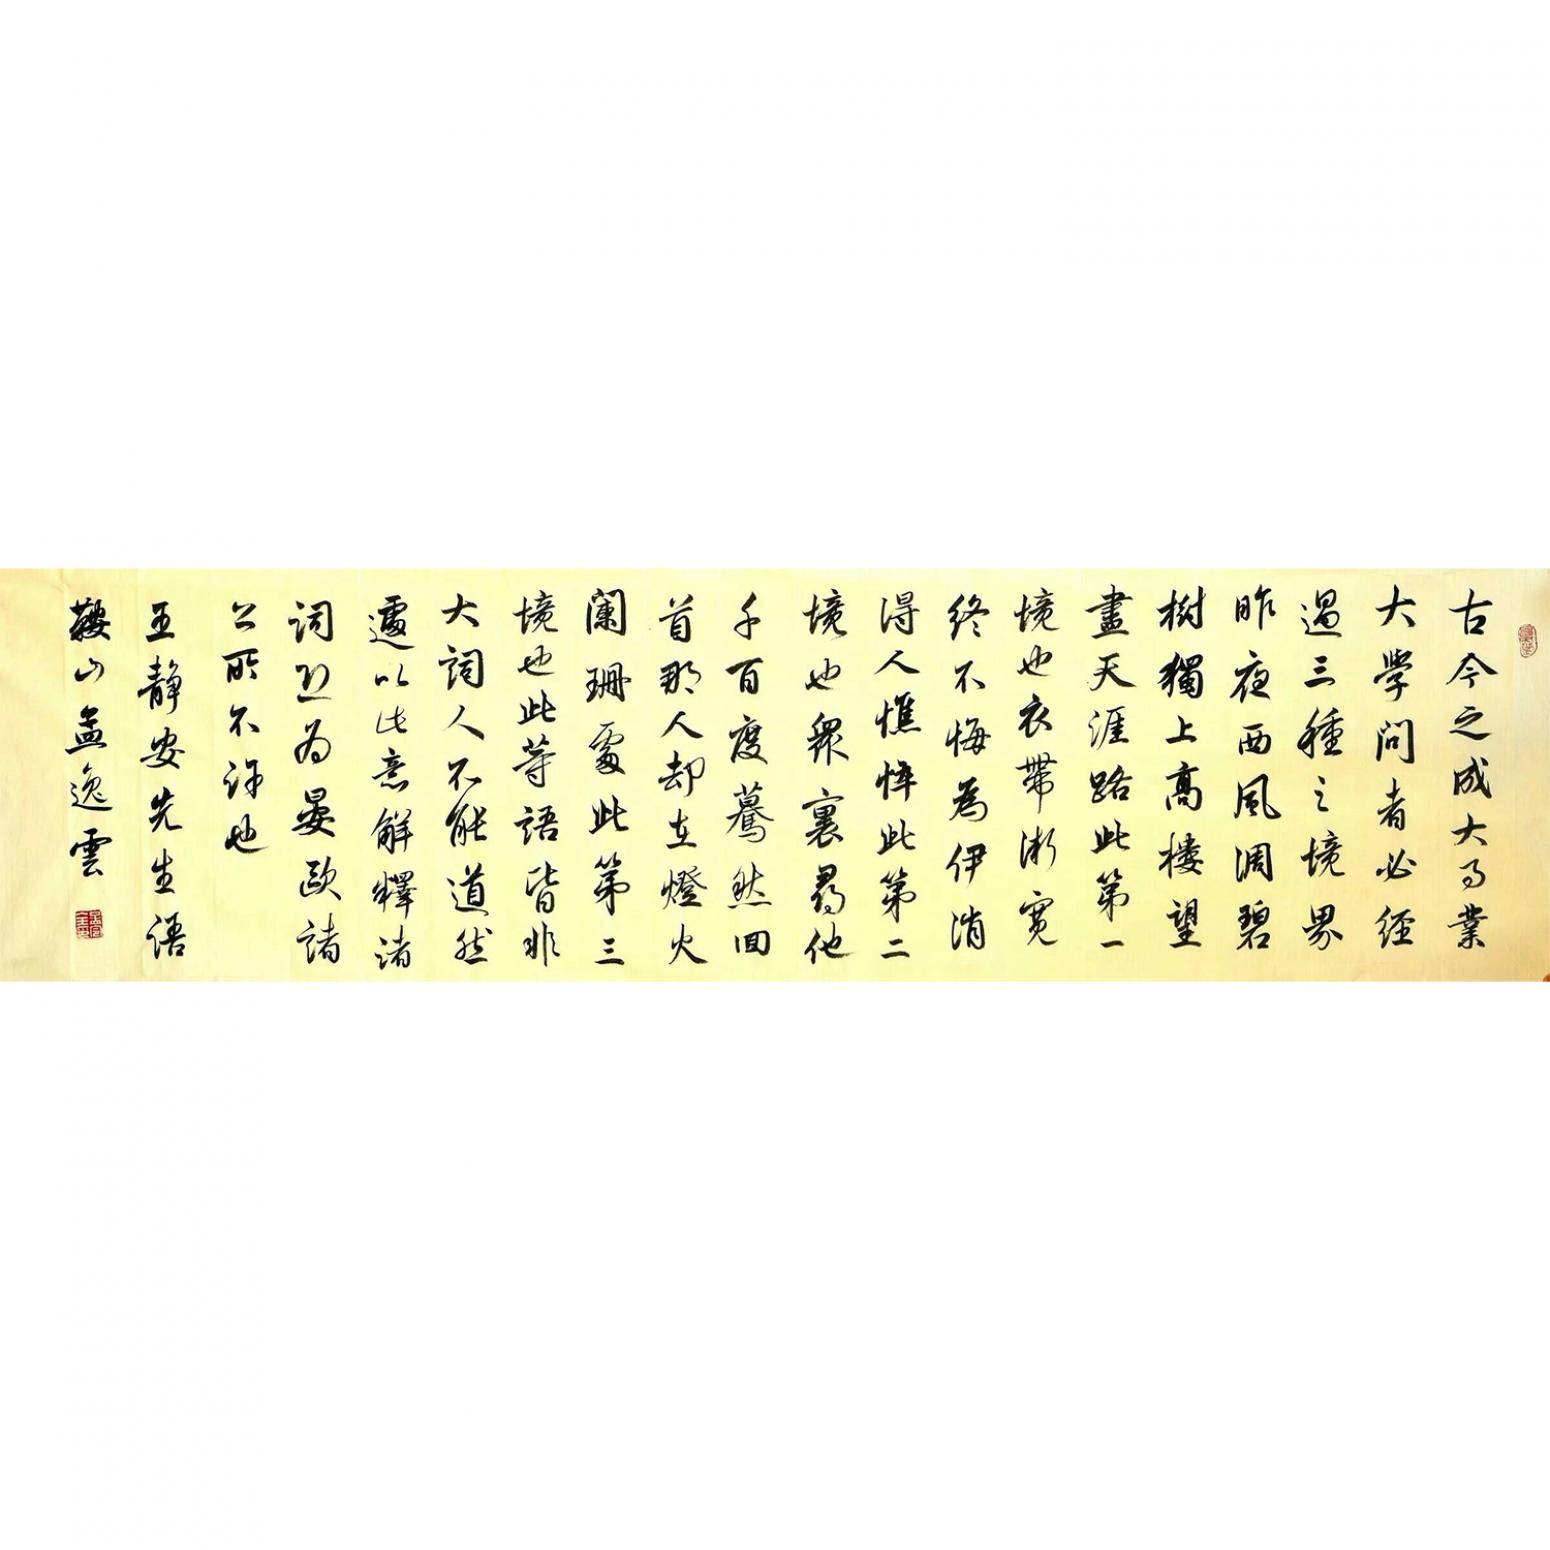 古今之成大事業
大學問者必經
過三種之境界
昨夜西風凋碧
樹獨上高樓望
盡天涯路此第一
境也衣帶漸寬
終不悔為伊消
得人憔悴此第二
境也眾裏尋他
千百度驀然回
首那人却在燈火
闌珊處此第三
境也此等語皆非
大詞人不能道然
遽以此意解釋諸
詞恐為晏歐諸
公所不許也
王靜安先生語
鞍山孟逸雲